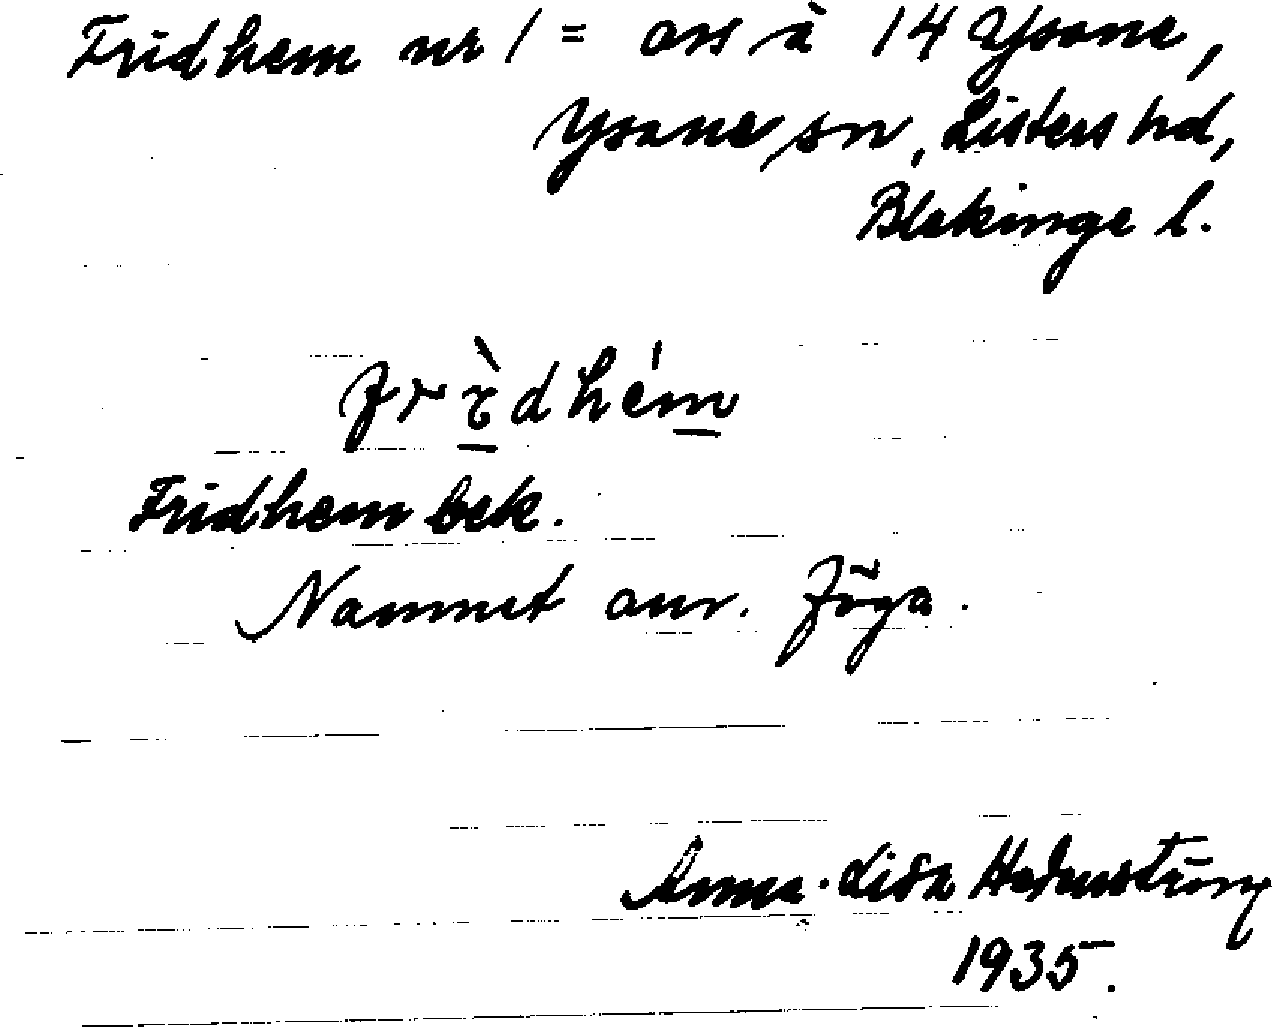 Fridhem nr 1 = avs å 14 Ysane,
Ysane sn, Listers hd,
Blekinge l.
frèdhém
Fridhem bek.
Namnet anv. föga.
Anna-Lisa Hedenström
1935.